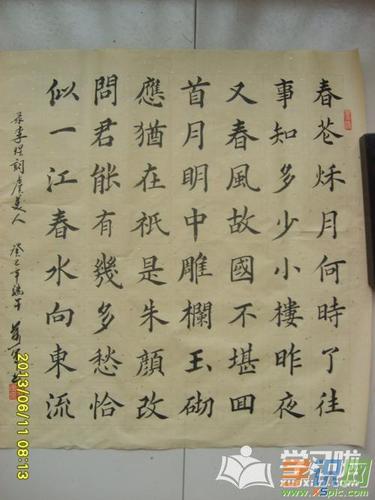 春花秋月何時了往
事知多少小樓昨夜
又春風故國不堪回
首月明中雕欄玉砌
應猶在祇是朱顏改
問君能有幾多愁恰
似一江春水向東流
录李煜詞虞美人 癸巳年端午
2013/06/11 08:13
学习啦
学识网